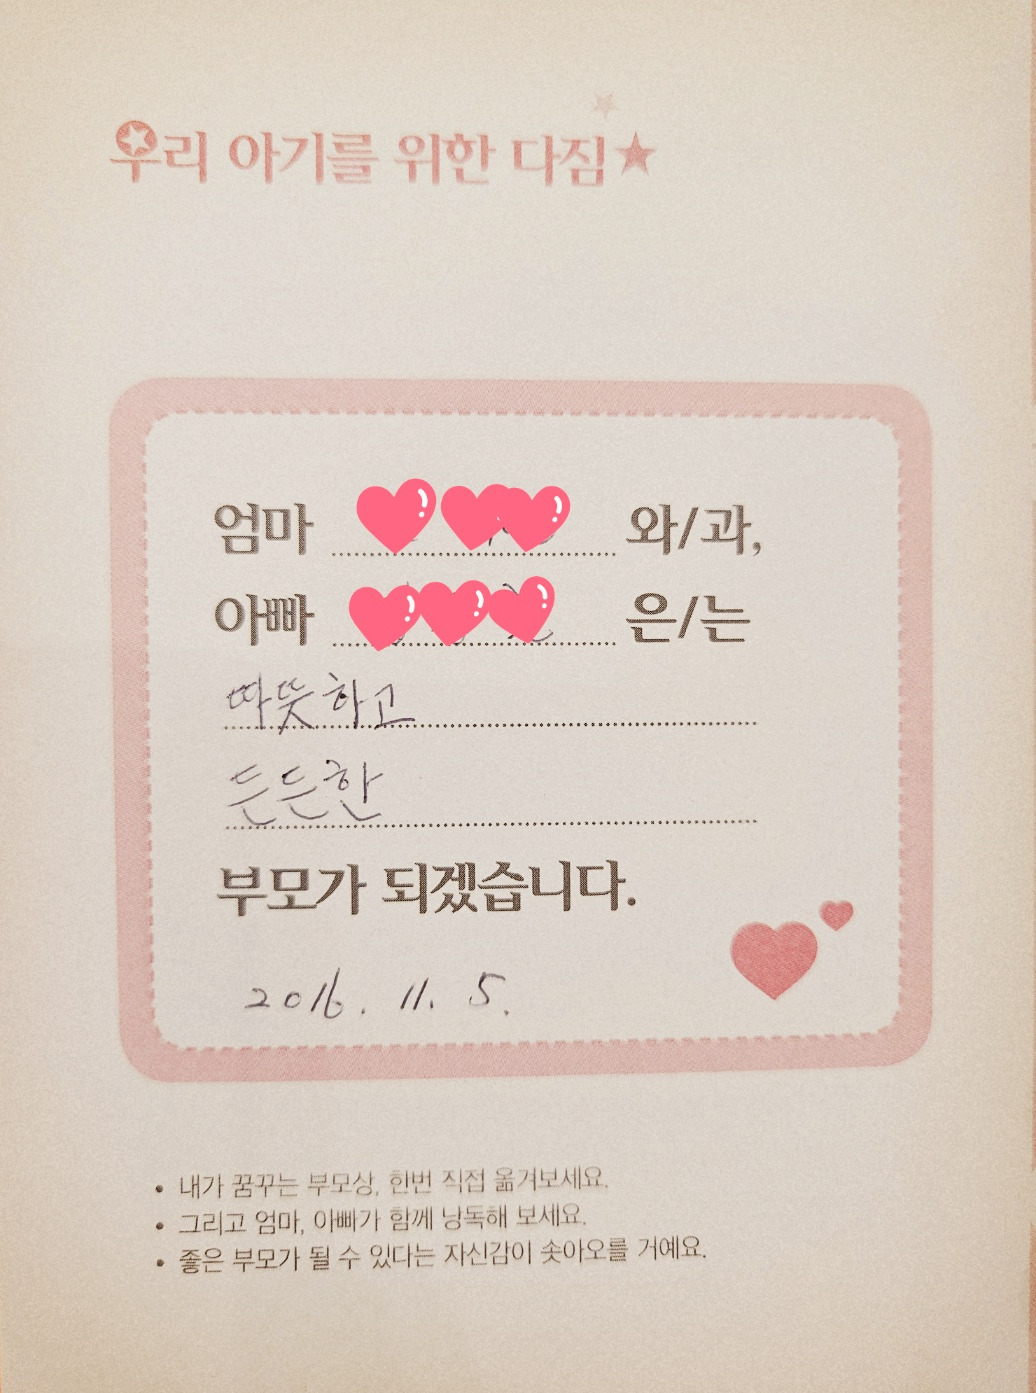 우리 아기를 위한 다짐
엄마 와/과,
아빠 은/는
따뜻하고
든든한
부모가 되겠습니다.
2016. 11. 5.
• 내가 꿈꾸는 부모상, 한번 직접 옮겨보세요.
• 그리고 엄마, 아빠가 함께 낭독해 보세요.
• 좋은 부모가 될 수 있다는 자신감이 솟아오를 거예요.